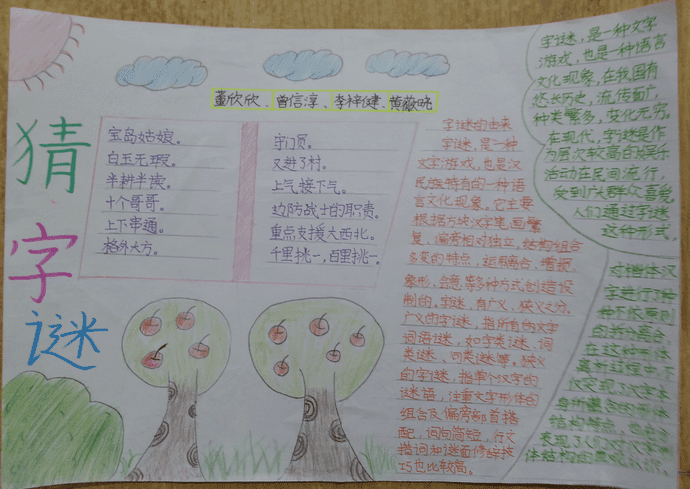 猜
字
谜
董欣欣、曾信淳、李梓健、黄薇
宝岛姑娘。
白玉无瑕。
半耕半读。
十个哥哥。
上下串通。
格外大方。
守门员。
又进了村。
上气接下气。
边防战士的职责。
重点支援大西北。
千里挑一,百里挑一。
字谜的由来
字谜,是一种
文字游戏,也是汉
民族特有的一种语
言文化现象。它主要
根据方块汉字笔画繁
复、偏旁相对独立,结构组合
多变的特点,运用离合、增损、
象形、会意等多种方式创造设
制的。字谜,有广义、狭义之分。
广义的字谜,指所有的文字
词语谜,如字类谜、词
类谜、句类谜等。狭义
的字谜,指单个汉字的
谜语,注重文字形体的
组合及偏旁部首搭
配,词句简短,行文
措词和谜面修辞技
巧也比较高。
字谜,是一种文字
游戏,也是一种语言
文化现象,在我国有
悠长历史,流传面广,
种类繁多,变化无穷。
在现代,字谜是作
为层次较高的娱乐
活动在民间流行,
受到广大群众喜爱。
人们通过字谜
这种形式,
对楷体汉
字进行了各
种不依原则
的拆拼离合,
在这种形体
离析过程中,不
仅呈现了汉字本
身所蕴含的形体
结构特点,也
表现了人们对汉字形
体结构的